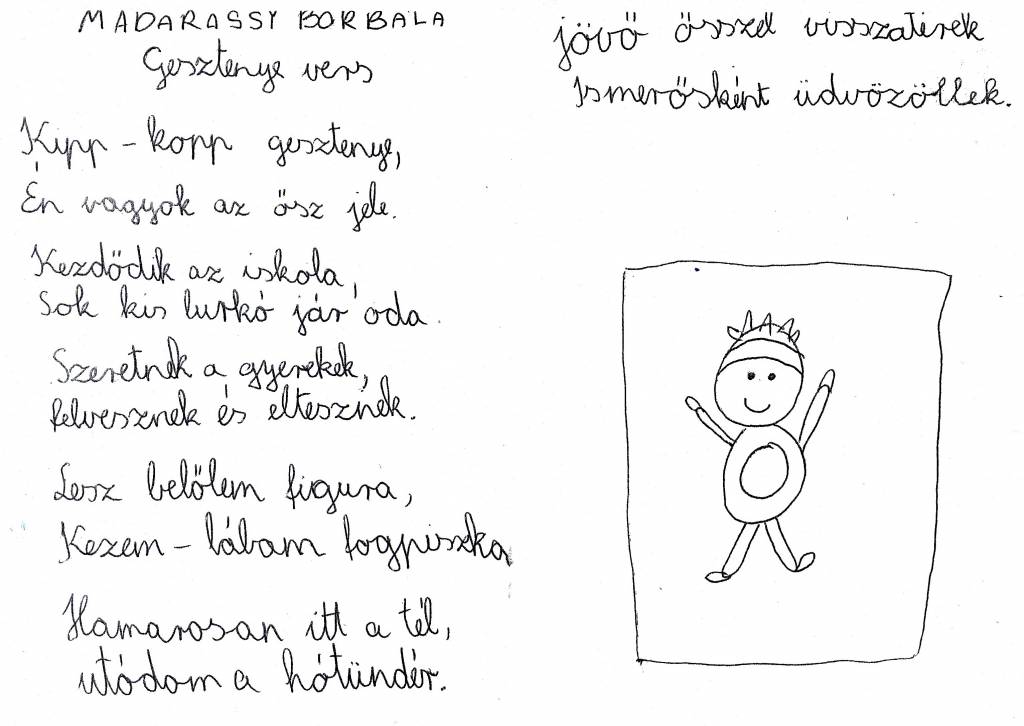 MADARASSY BORBALA
Gesztenye vers
Kipp - kopp gesztenye,
Én vagyok az ősz jele.
Kezdődik az iskola,
Sok kis lurkó jár oda.
Szeretnek a gyerekek,
felvesznek és eltesznek.
Lesz belőlem figura,
Kezem - lábam fogpiszka
Hamarosan itt a tél,
utódom a hótündér.
jövő ősszel visszatérek
Ismerősként üdvözöllek.